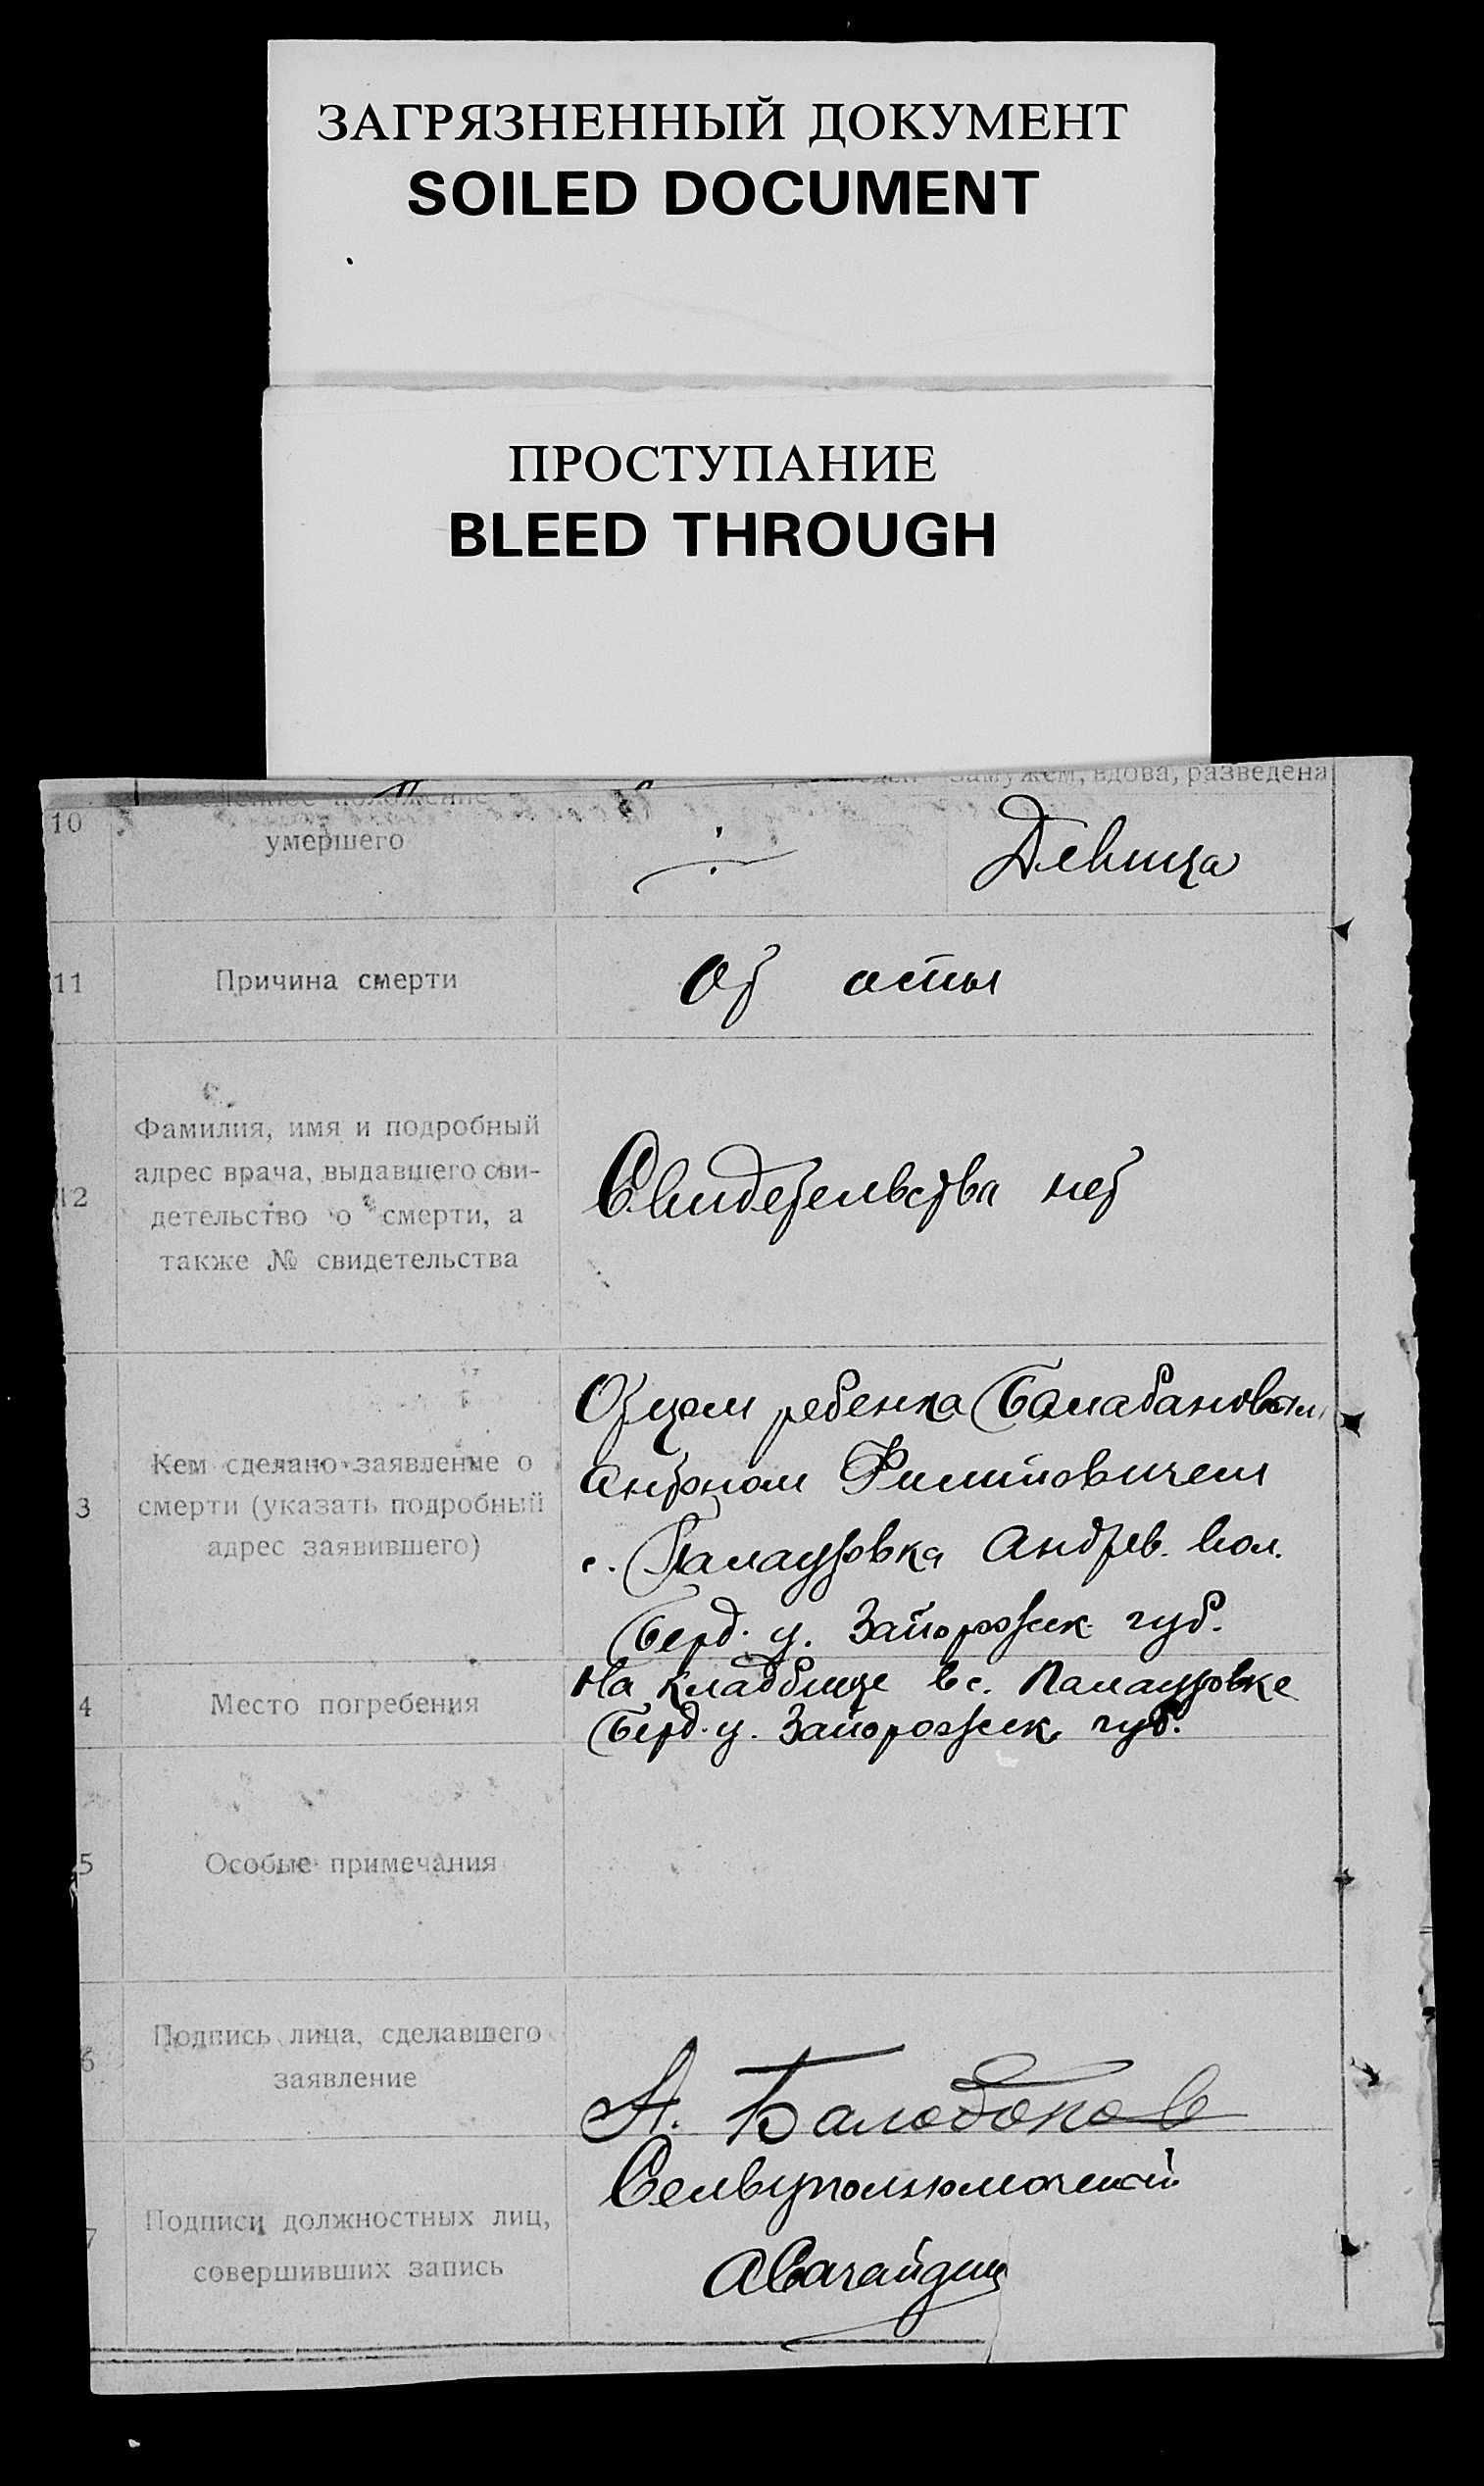 ЗАГРЯЗНЕННЫЙ ДОКУМЕНТ
SOILED DOCUMENT
ПРОСТУПАНИЕ
BLEED THROUGH
замужем, вдова, разведена
10
положение
умершего
Девица
11
Причина смерти
От оспы
12
Фамилия, имя и подробный
адрес врача, выдавшего сви-
детельство о смерти, а
также № свидетельства
Свидетельства нет
3
Кем сделано заявление о
смерти (указать подробный
адрес заявившего)
Отцом ребенка Балабановым
Антоном Филиповичем
с. Палаузовка Андрев. вол.
Берд. у. Запорожск. губ.
4
Место погребения
На кладбище в с. Палаузовке
Берд. у. Запорожск. губ.
5
Особые примечания
6
Подпись лица, сделавшего
заявление
А. Балобонов
7
Подписи должностных лиц,
совершивших запись